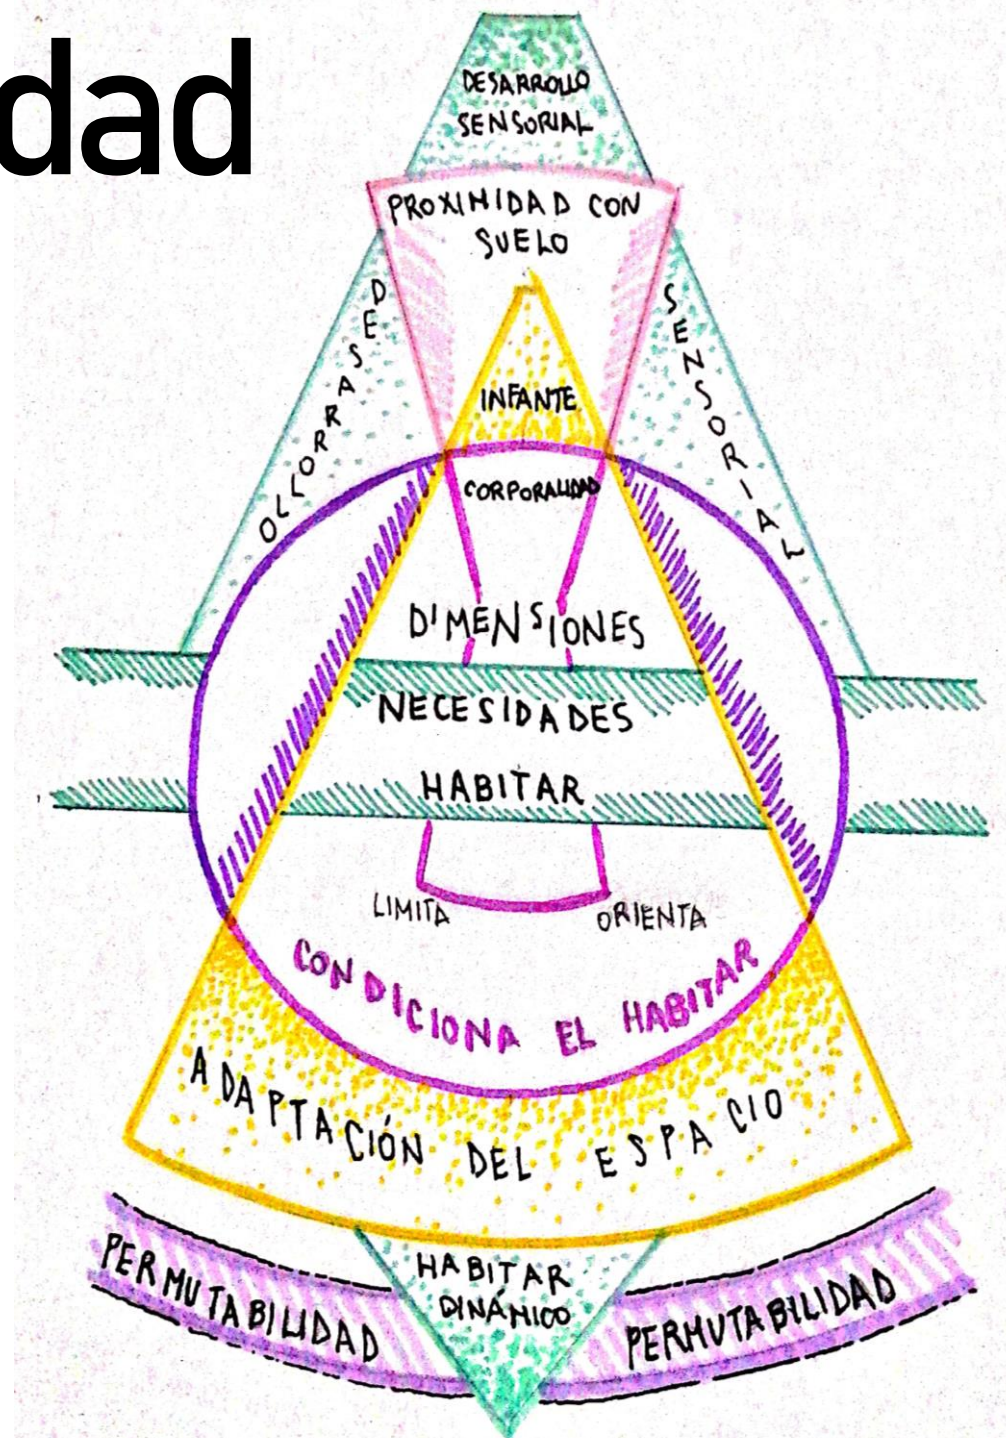 dad
DESARROLLO
SENSORIAL
PROXIMIDAD CON
SUELO
DESARROLLO
SENSORIAL
INFANTE
CORPORALIDAD
DIMENSIONES
NECESIDADES
HABITAR
LIMITA
ORIENTA
CONDICIONA EL HABITAR
ADAPTACIÓN DEL ESPACIO
HABITAR
DINÁMICO
PERMUTABILIDAD
PERMUTABILIDAD